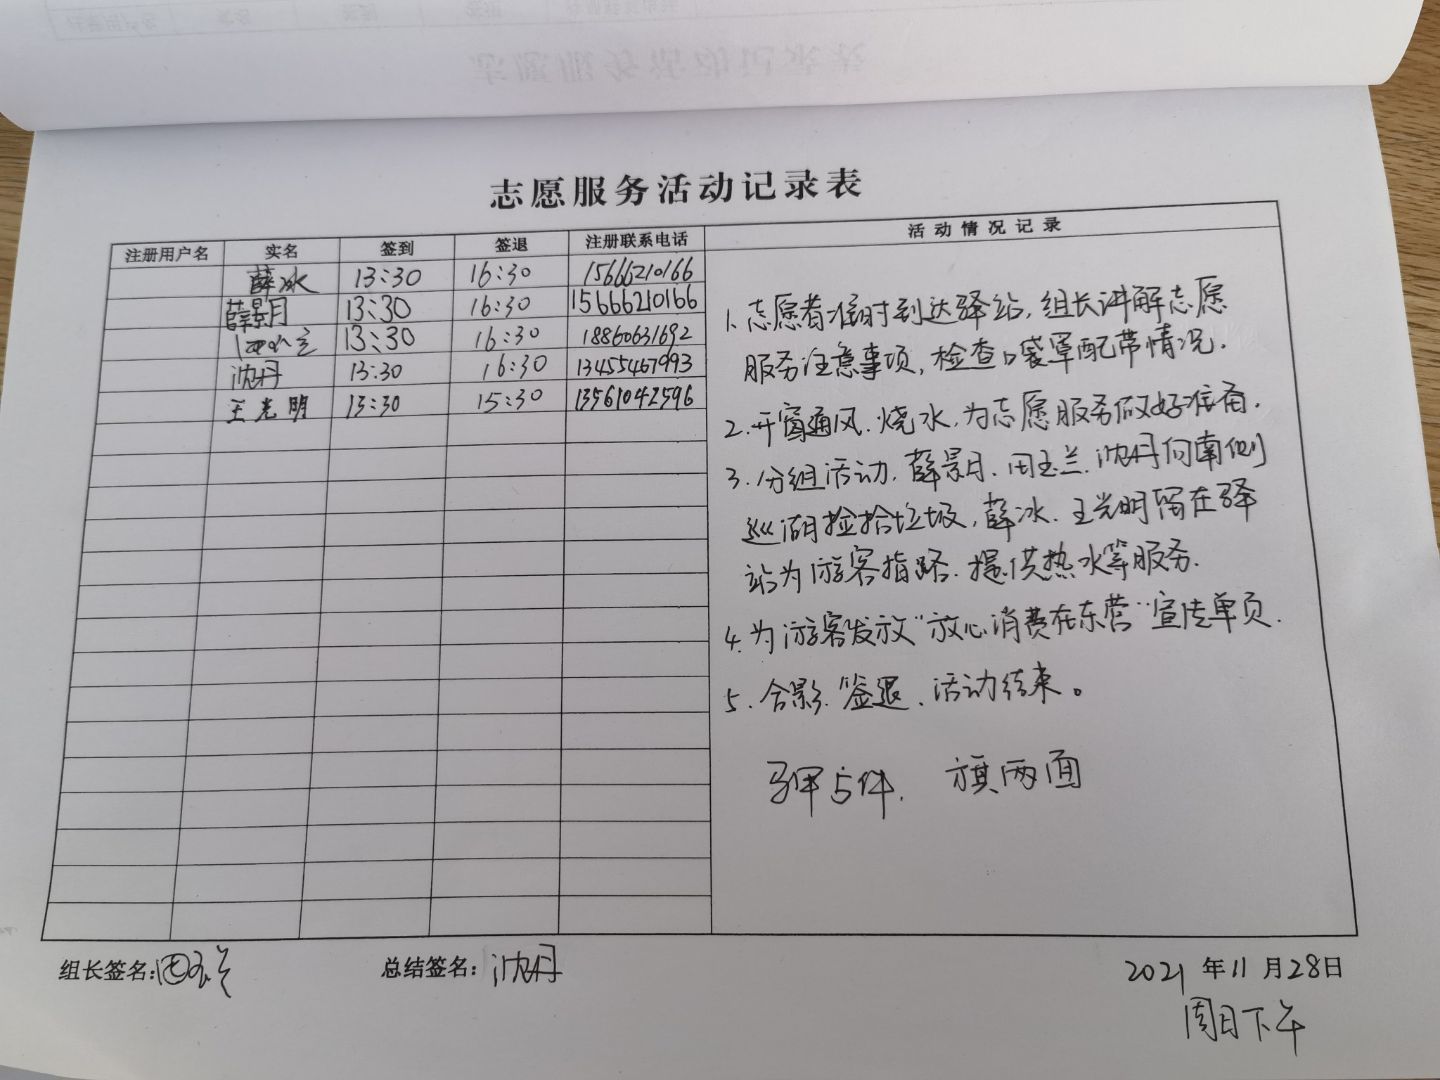 志愿服务活动记录表
注册用户名 实名 签到 签退 注册联系电话 活动情况记录
薛冰 13:30 16:30 15666210166
薛景月 13:30 16:30 15666210166
13:30 16:30 18860631692
沈丹 13:30 16:30 13455467993
王光明 13:30 15:30 13561042596
1.志愿者准时到达驿站,组长讲解志愿
服务注意事项,检查口袋罩配带情况.
2.开窗通风.烧水,为志愿服务做好准备.
3.分组活动,薛景月、田玉兰、沈丹向南侧
巡湖捡拾垃圾,薛冰、王光明留在驿
站为游客指路、提供热水等服务.
4.为游客发放"放心消费在东营"宣传单页.
5.合影.签退、活动结束。
5件. 旗两面
组长签名: 总结签名:沈丹 2021年11月28日
周日下午